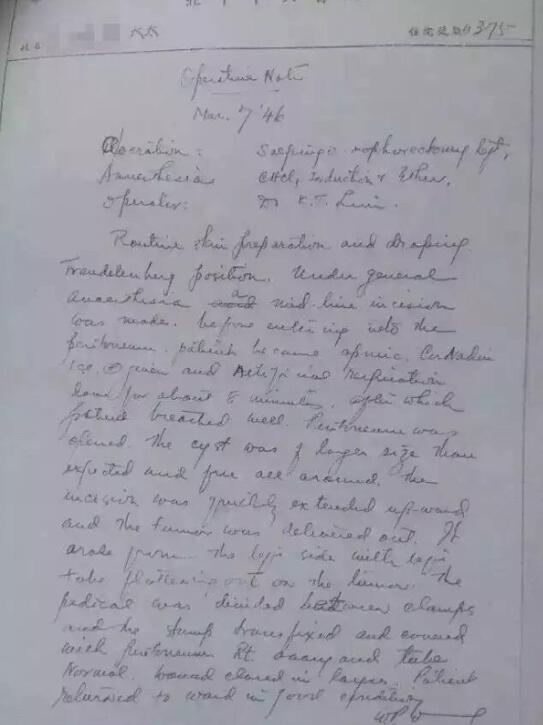 太太 住院號數 375
Operative Note
Mar. 7 '46
Operation: Salpingo-oophorectomy left,
Anaesthesia CHCl3 Induction & Ether.
Operator: Dr K.T. Limi.
Routine skin preparation and draping.
Trendelenburg position. Under general
anaesthesia a mid-line incision
was made. before entering into the
peritoneum, patient became apnic.
1cc given and Artificial respiration
done for about 8 minutes, after which
patient breathed well. Peritoneum was
opened. The cyst was of larger size than
expected and free all around. The
incision was quickly extended upward
and the tumor was delivered out. It
arose from the left side with left
tube flattening out on the tumor. The
pedical was divided between clamps
and the stump transfixed and covered
with peritoneum Rt. ovary and tube
Normal. wound closed in layers. Patient
returned to ward in good condition